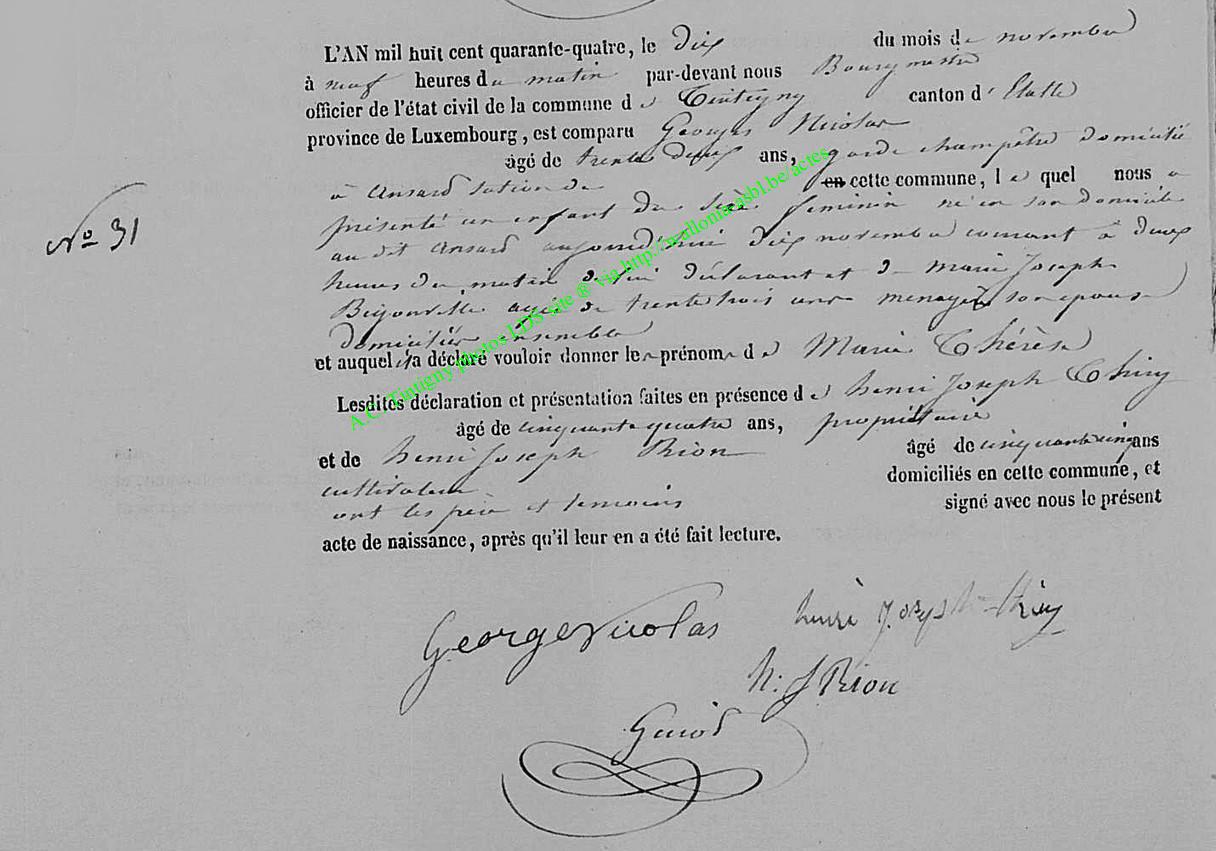 L'AN mil huit cent quarante-quatre, le Dix du mois de novembre
à neuf heures du matin par-devant nous Bourgmestre
officier de l'état civil de la commune de Tintigny canton d'Etalle
province de Luxembourg, est comparu Georges Nicolas
âgé de trente deux ans, garde champêtre domicilié
à Ansart section de en cette commune, le quel nous a
N° 31
présenté un enfant du sexe féminin né en son domicile
au dit Ansart aujourd'hui dix novembre courant à deux
heures du matin de lui déclarant et de Marie Joseph
agée de trente trois ans menagère son épouse
domiciliés ensemble
et auquel il a déclaré vouloir donner les prénoms de Marie Thérèse
Lesdites déclaration et présentation faites en présence de henri Joseph Thiry
âgé de cinquante quatre ans, propriétaire
et de henri Joseph Rion âgé de cinquante cinq ans
cultivateur domiciliés en cette commune, et
ont les père et temoins signé avec nous le présent
acte de naissance, après qu'il leur en a été fait lecture.
George Nicolas henri Joseph Thiry
h. J Rion
A.C. Tintigny photos LDS site ® via http://wallonia-asbl.be/actes